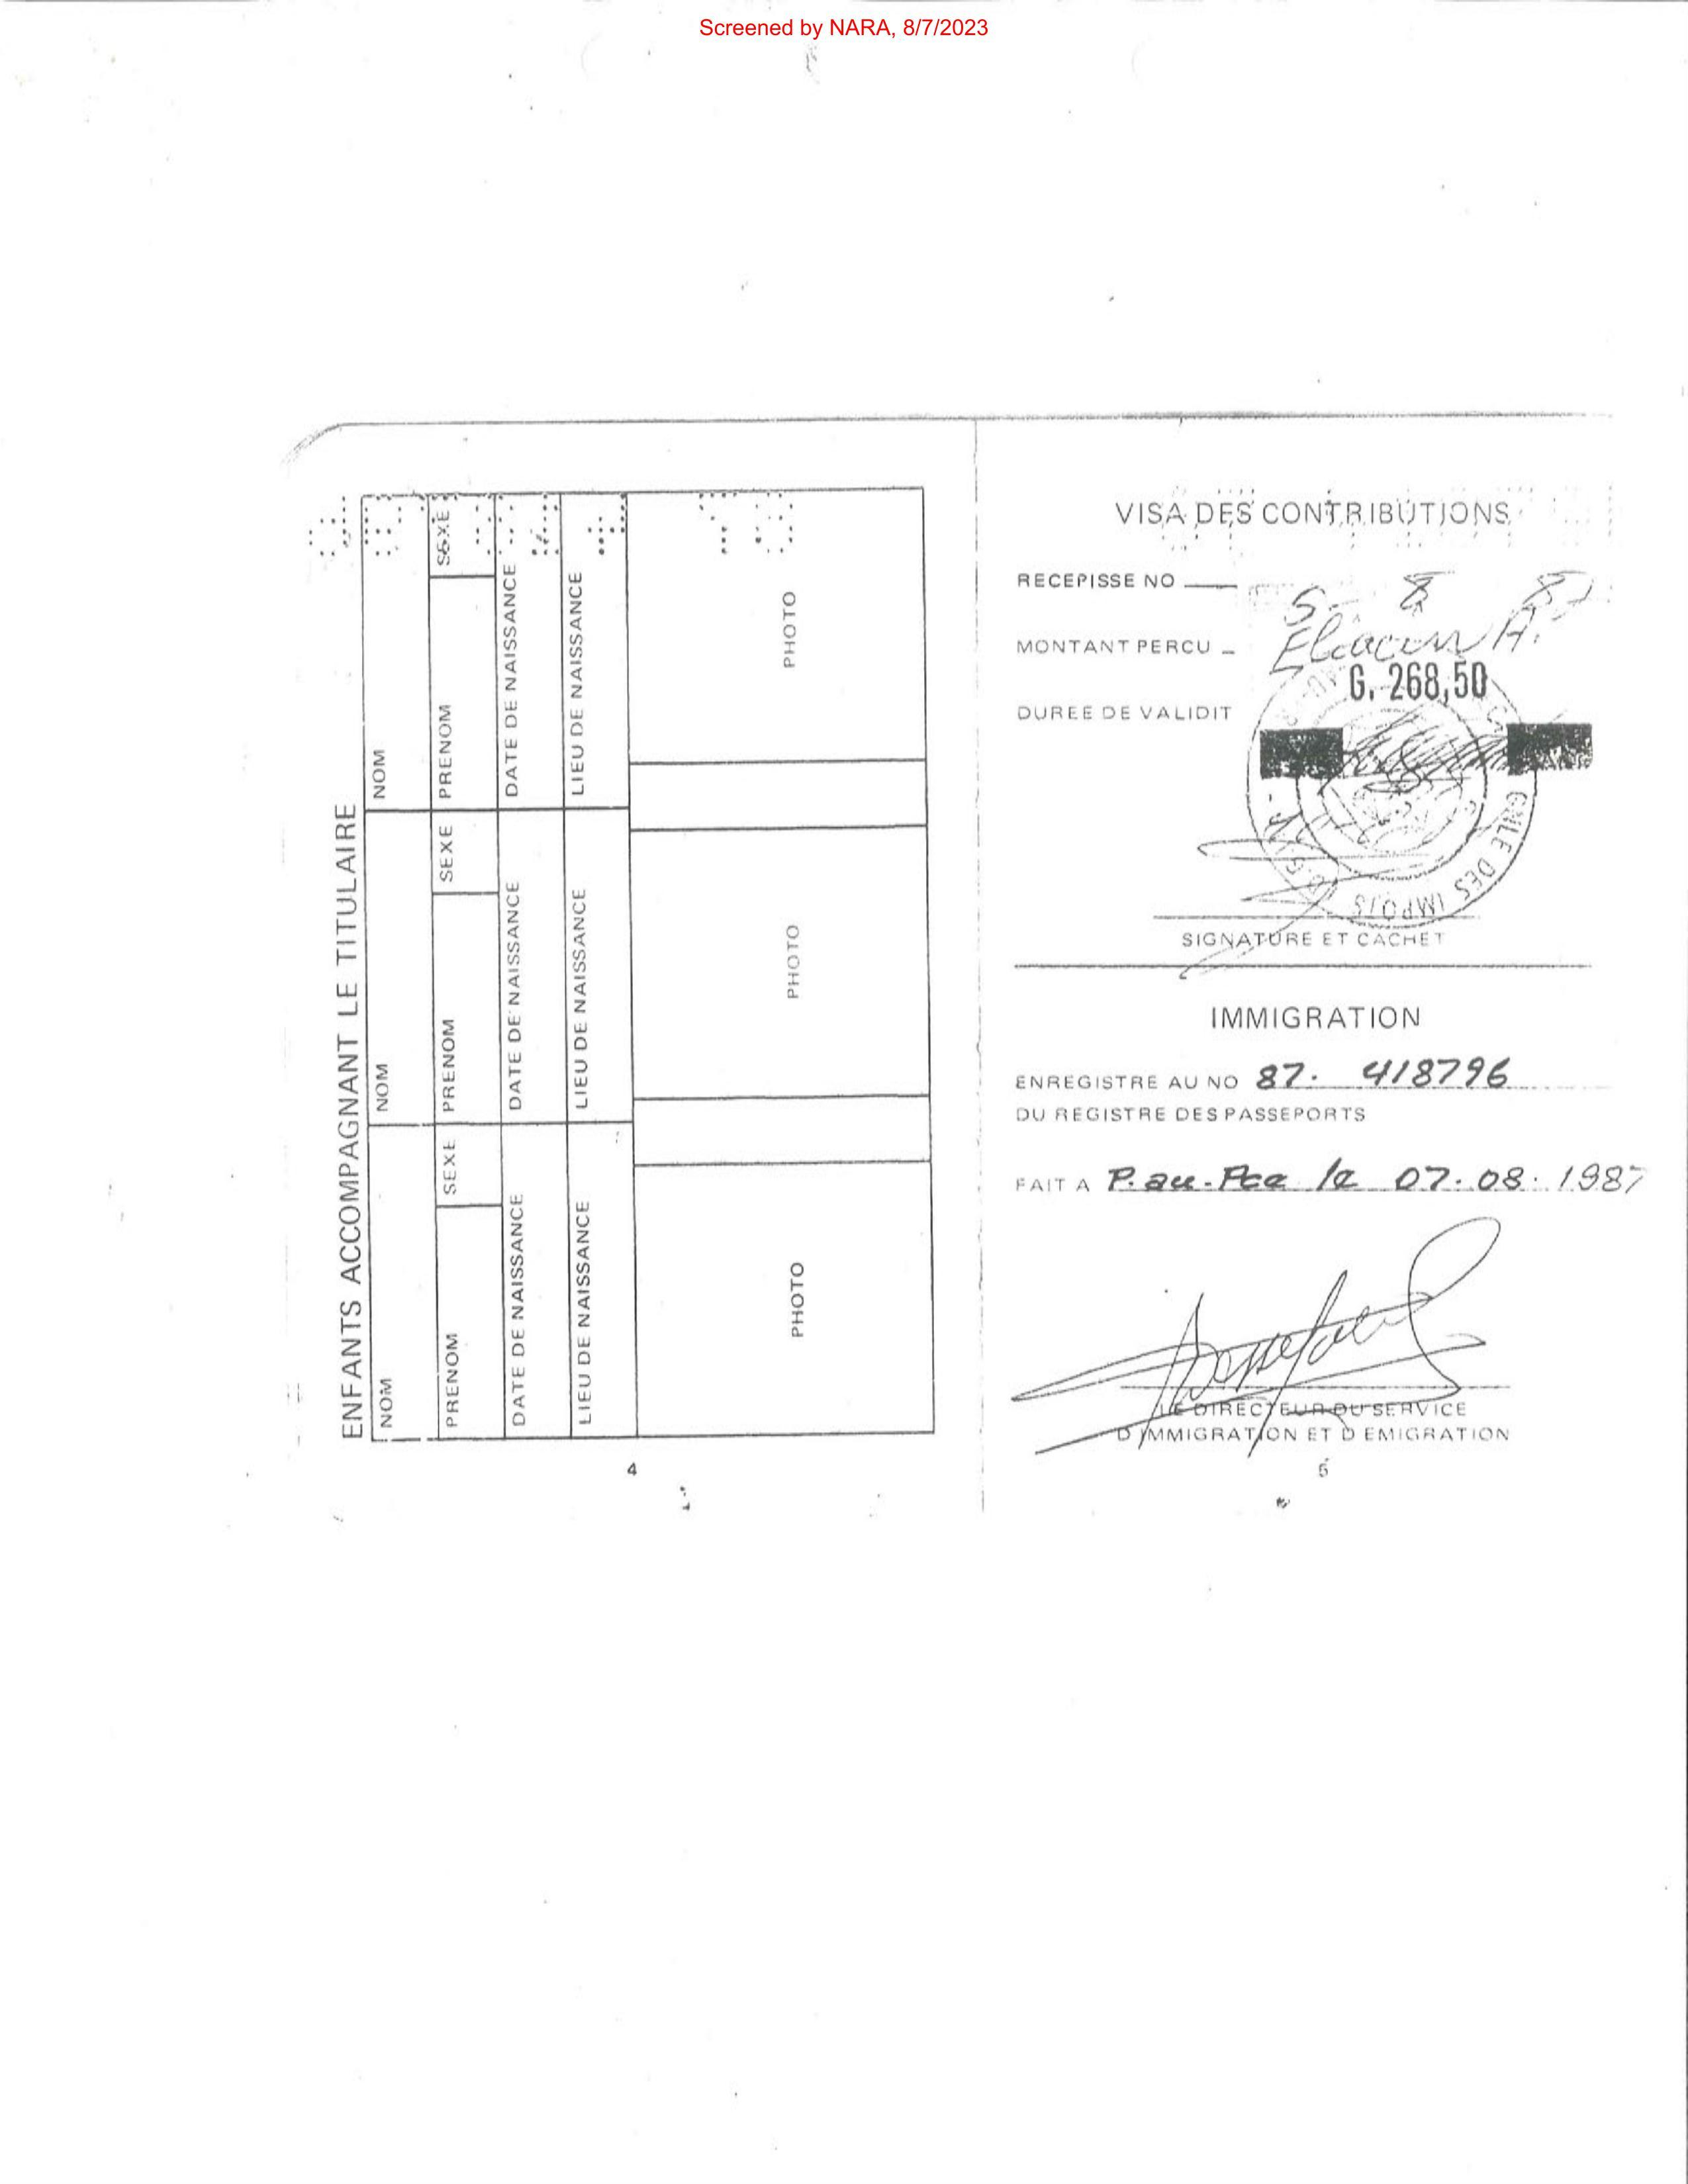 Screened by NARA, 8/7/2023
ENFANTS ACCOMPAGNANT LE TITULAIRE
NOM
PRENOM
SEXE
DATE DE NAISSANCE
LIEU DE NAISSANCE
PHOTO
NOM
PRENOM
SEXE
DATE DE NAISSANCE
LIEU DE NAISSANCE
PHOTO
NOM
PRENOM
SEXE
DATE DE NAISSANCE
LIEU DE NAISSANCE
PHOTO
4
VISA DES CONTRIBUTIONS
RECEPISSE NO
5- 8 87
MONTANT PERCU
G. 268,50
DUREE DE VALIDIT
GNLE DES IMPOTS
SIGNATURE ET CACHET
IMMIGRATION
ENREGISTRE AU NO 87. 418796
DU REGISTRE DES PASSEPORTS
FAIT A P.au-Pce le 07.08.1987
LE DIRECTEUR DU SERVICE
D IMMIGRATION ET D EMIGRATION
5